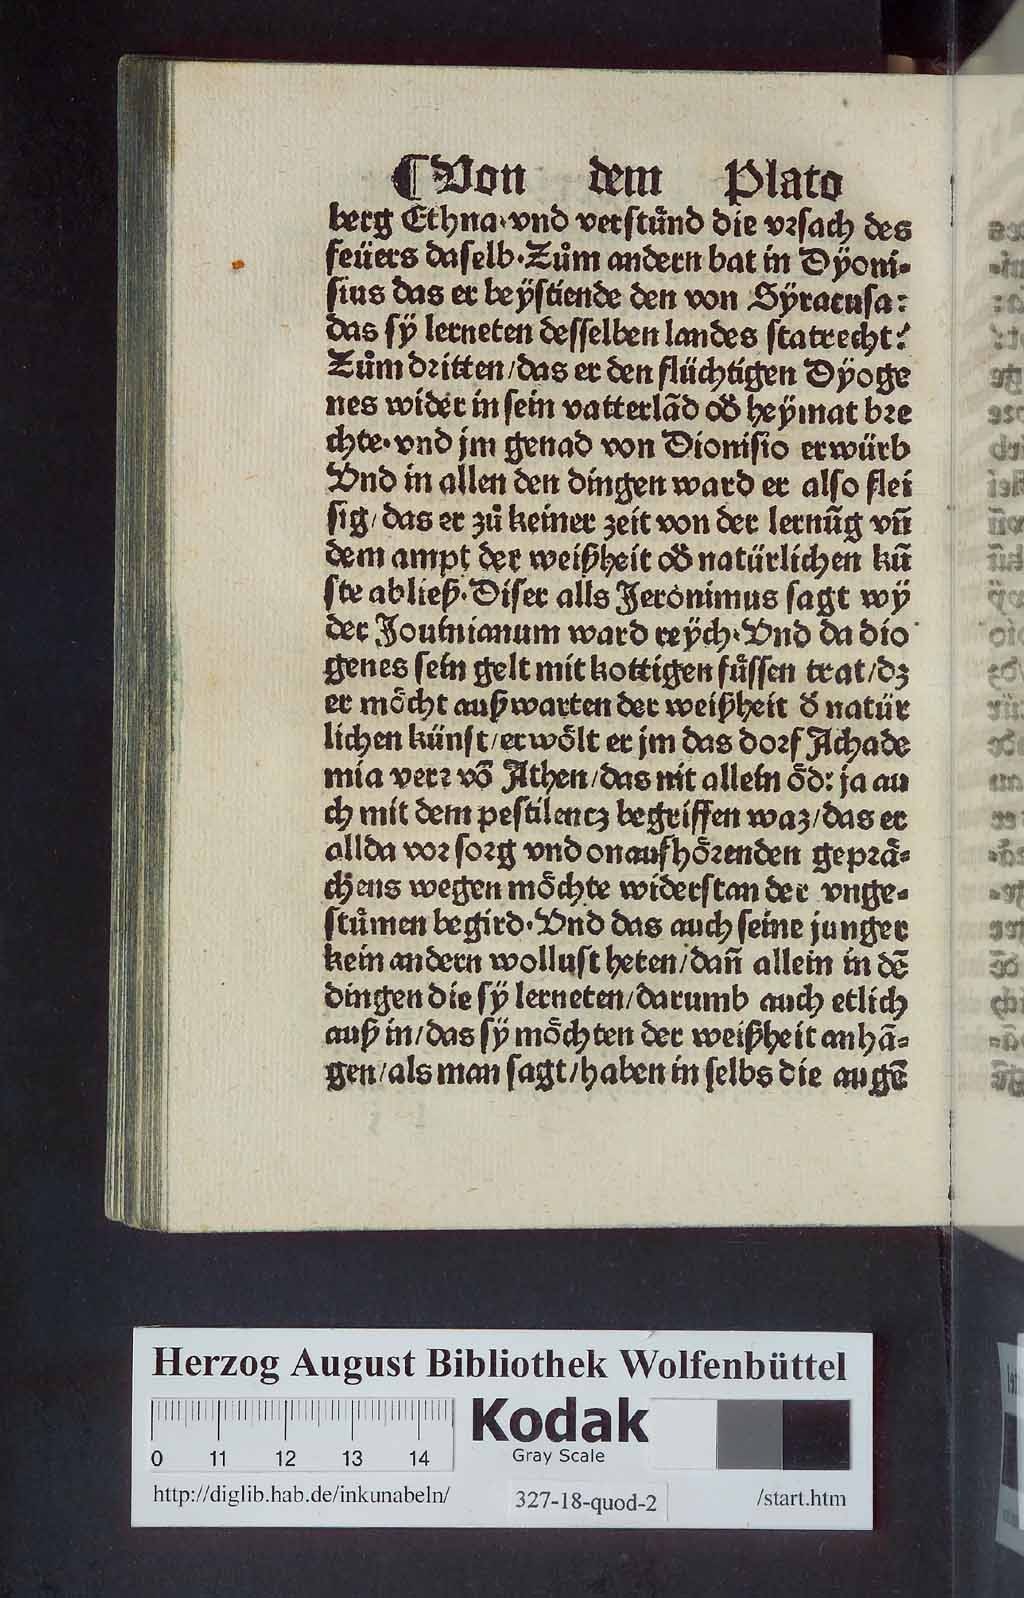 ¶Von dem Plato
berg Ethna·vnd verstůnd die vrsach des
feüers daselb·Zům andern bat in Dÿoni⸗
sius das er beÿstiende den von Sÿracusa:
das sÿ lerneten desselben landes statrecht:
Zům dritten/das er den flüchtigen Dÿoge
nes wider in sein vatterlãd oď heÿmat bre
chte·vnd jm genad von Dionisio erwürb
Vnd in allen den dingen ward er also flei
sig/das er zů keiner zeit von der lernũg vñ
dem ampt der weißheit oď natürlichen kũ
ste abließ·Diser alls Jeronimus sagt wÿ
der Jouinianum ward reÿch·Vnd da dio
genes sein gelt mit kottigen fůssen trat/dz
er mo̊cht außwarten der weißheit ď natür
lichen künst/erwo̊lt er jm das dorf Achade
mia verr võ Athen/das nit allein o̊d: ja au
ch mit dem pestilencz begriffen waz/das er
allda vor sorg vnd onaufho̊renden geprå⸗
chens wegen mo̊chte widerstan der vnge⸗
stůmen begird·Vnd das auch seine junger
kein andern wollust heten/dañ allein in dẽ
dingen die sÿ lerneten/darumb auch etlich
auß in/das sÿ mo̊chten der weißheit anhã⸗
gen/als man sagt/haben in selbs die augẽ
Herzog August Bibliothek Wolfenbüttel
0 11 12 13 14
Kodak
Gray Scale
http://diglib.hab.de/inkunabeln/ 327-18-quod-2 /start.htm